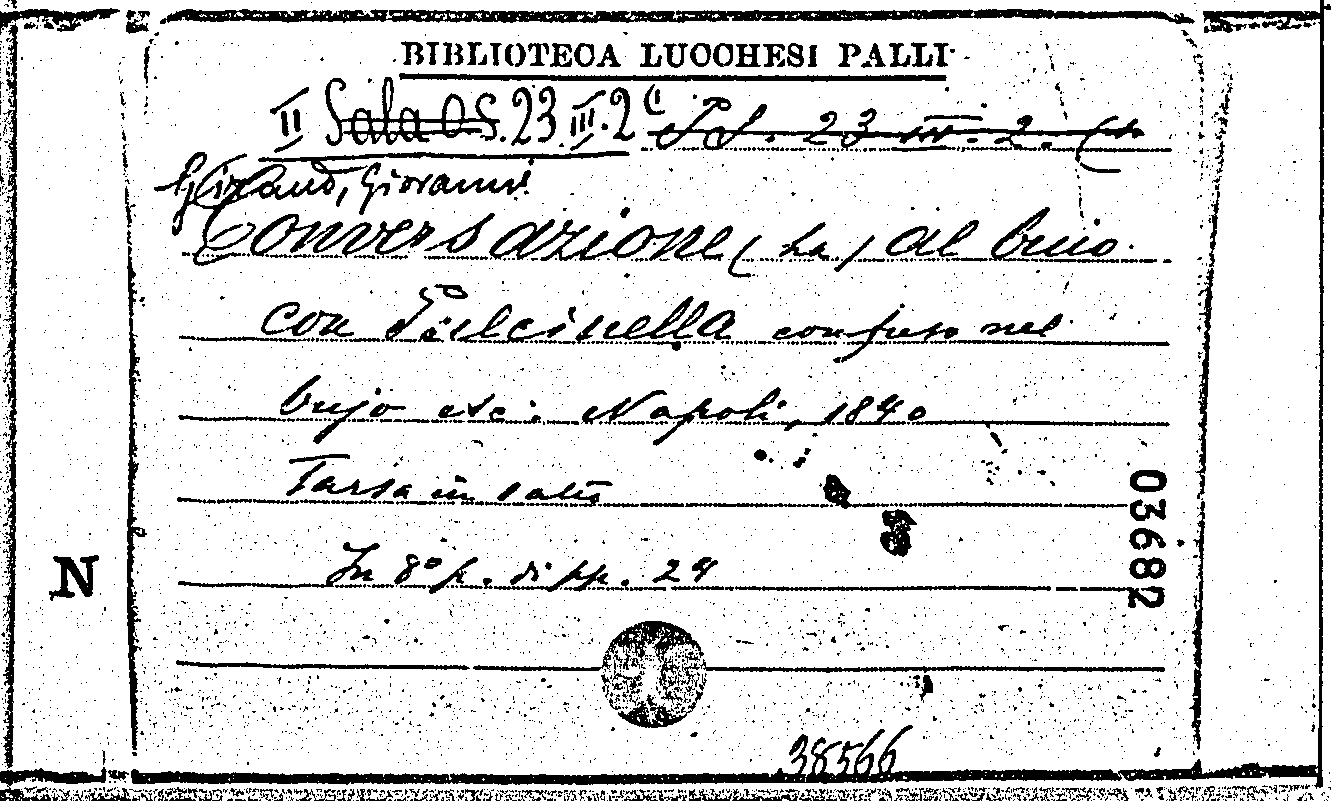 BIBLIOTECA LUCCHESI PALLI
II Sala O.S. 23.III.2 (1 23 III. 2. (1
Giovanni
Conversazione (La) al buio
con Pulcinella confuso nel
bujo etc: Napoli, 1840
Farsa in
In 8° p. di pp. 24
N
03682
38566